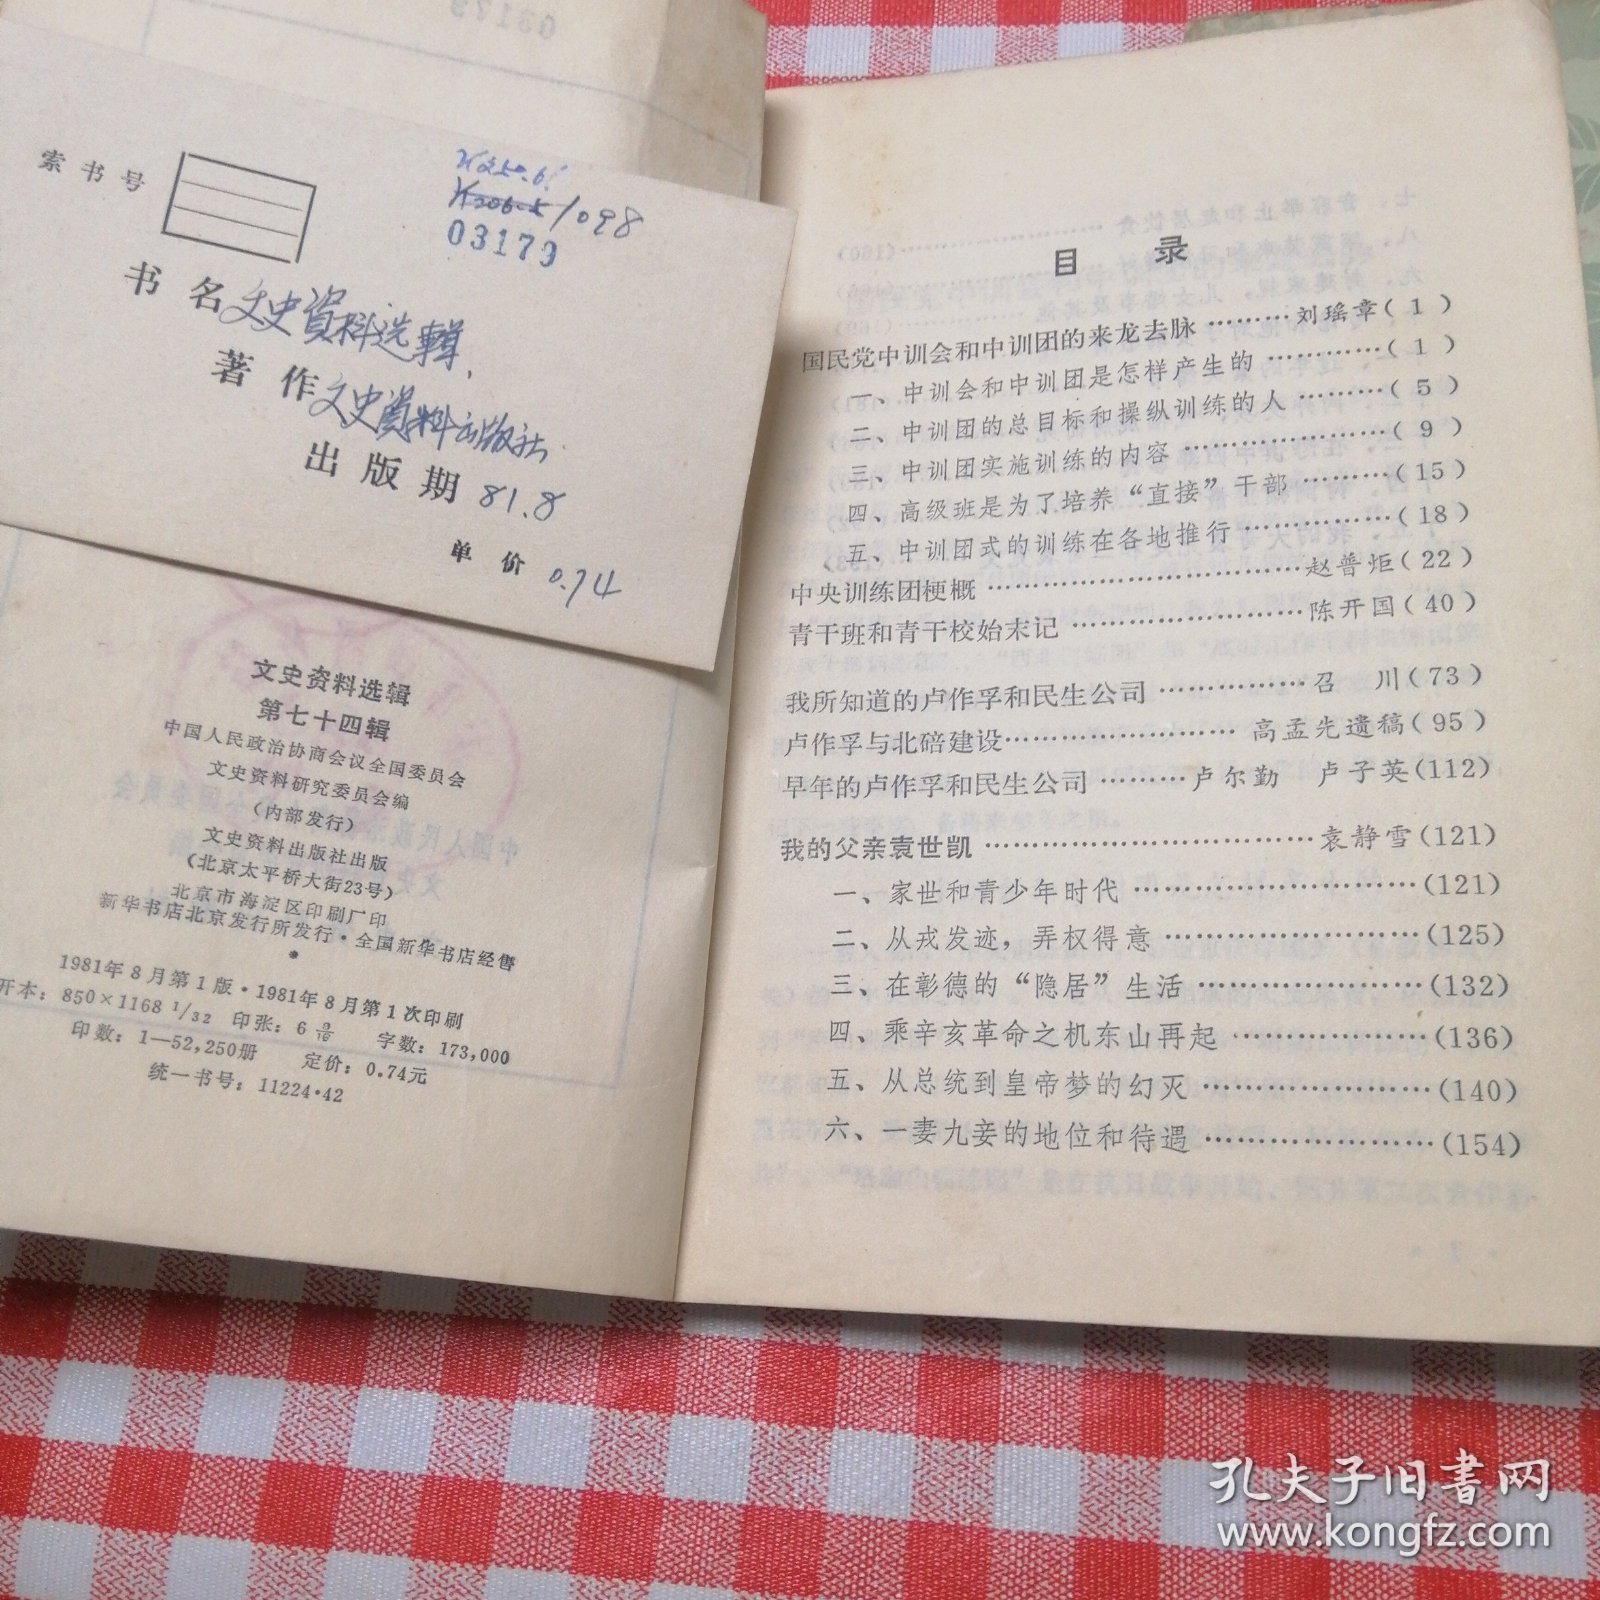 03179
索书号
K250.6
K206.5/098
03179
书名 文史資料选輯
著作 文史資料出版社
出版期 81.8
单价 0.74
文史资料选辑
第七十四辑
中国人民政治协商会议全国委员会
文史资料研究委员会编
(内部发行)
文史资料出版社出版
(北京太平桥大街23号)
北京市海淀区印刷厂印
新华书店北京发行所发行·全国新华书店经售
*
1981年8月第1版·1981年8月第1次印刷
开本：850×1168 1/32 印张：6 9/16 字数：173,000
印数：1—52,250册 定价：0.74元
统一书号：11224·42
目 录
国民党中训会和中训团的来龙去脉………刘瑶章(1)
一、中训会和中训团是怎样产生的…………(1)
二、中训团的总目标和操纵训练的人………(5)
三、中训团实施训练的内容…………………(9)
四、高级班是为了培养“直接”干部………(15)
五、中训团式的训练在各地推行……………(18)
中央训练团梗概……………………………赵普炬(22)
青干班和青干校始末记……………………陈开国(40)
我所知道的卢作孚和民生公司……………召 川(73)
卢作孚与北碚建设…………………… 高孟先遗稿(95)
早年的卢作孚和民生公司………卢尔勤 卢子英(112)
我的父亲袁世凯……………………………袁静雪(121)
一、家世和青少年时代…………………………(121)
二、从戎发迹，弄权得意………………………(125)
三、在彰德的“隐居”生活……………………(132)
四、乘辛亥革命之机东山再起…………………(136)
五、从总统到皇帝梦的幻灭……………………(140)
六、一妻九妾的地位和待遇……………………(154)
孔夫子旧书网
www.kongfz.com